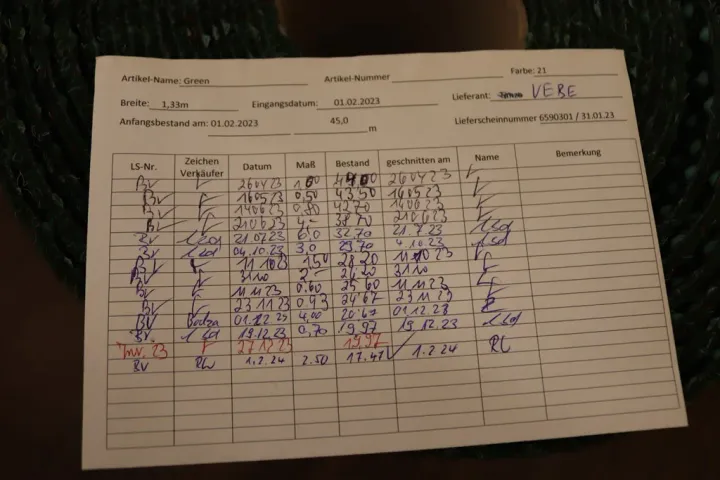 Artikel-Name: Green Artikel-Nummer Farbe: 21
Breite: 1,33m Eingangsdatum: 01.02.2023 Lieferant: VEBE
Anfangsbestand am: 01.02.2023 45,0 m Lieferscheinnummer 6590301 / 31.01.23
LS-Nr. Zeichen Verkäufer Datum Maß Bestand geschnitten am Name Bemerkung
BV 260423 260423
BV 160523 0,50 43,50 160523
BV 140623 0,80 42,70 140623
BV 210623 4,- 38,70 210623
BV 21.07.23 6,0 32,70 21.7.23
BV 04.10.23 3,0 29,70 4.10.23
BV 111023 1,50 28,20 111023
BV 3110 2,- 26,20 3110
BV 111123 0.60 25,60 111123
BV 231123 0,93 24,67 231123
BV 01.12.23 4,00 20,67 01.12.23
BV 19.12.23 0,70 19,97 19.12.23
Inv. 23 271223 19,97
BV RL 1.2.24 2.50 17.47 1.2.24 RL